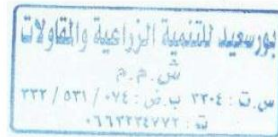 بورسعيد للتنمية الزراعية والمقاولات
ش.م.م
س.ت : ٣٣٠٤ ب.ض : ٠٧٤ / ٥٣١ / ٢٣٣
ت : ٠٦٦٣٣٣٤٧٧٢